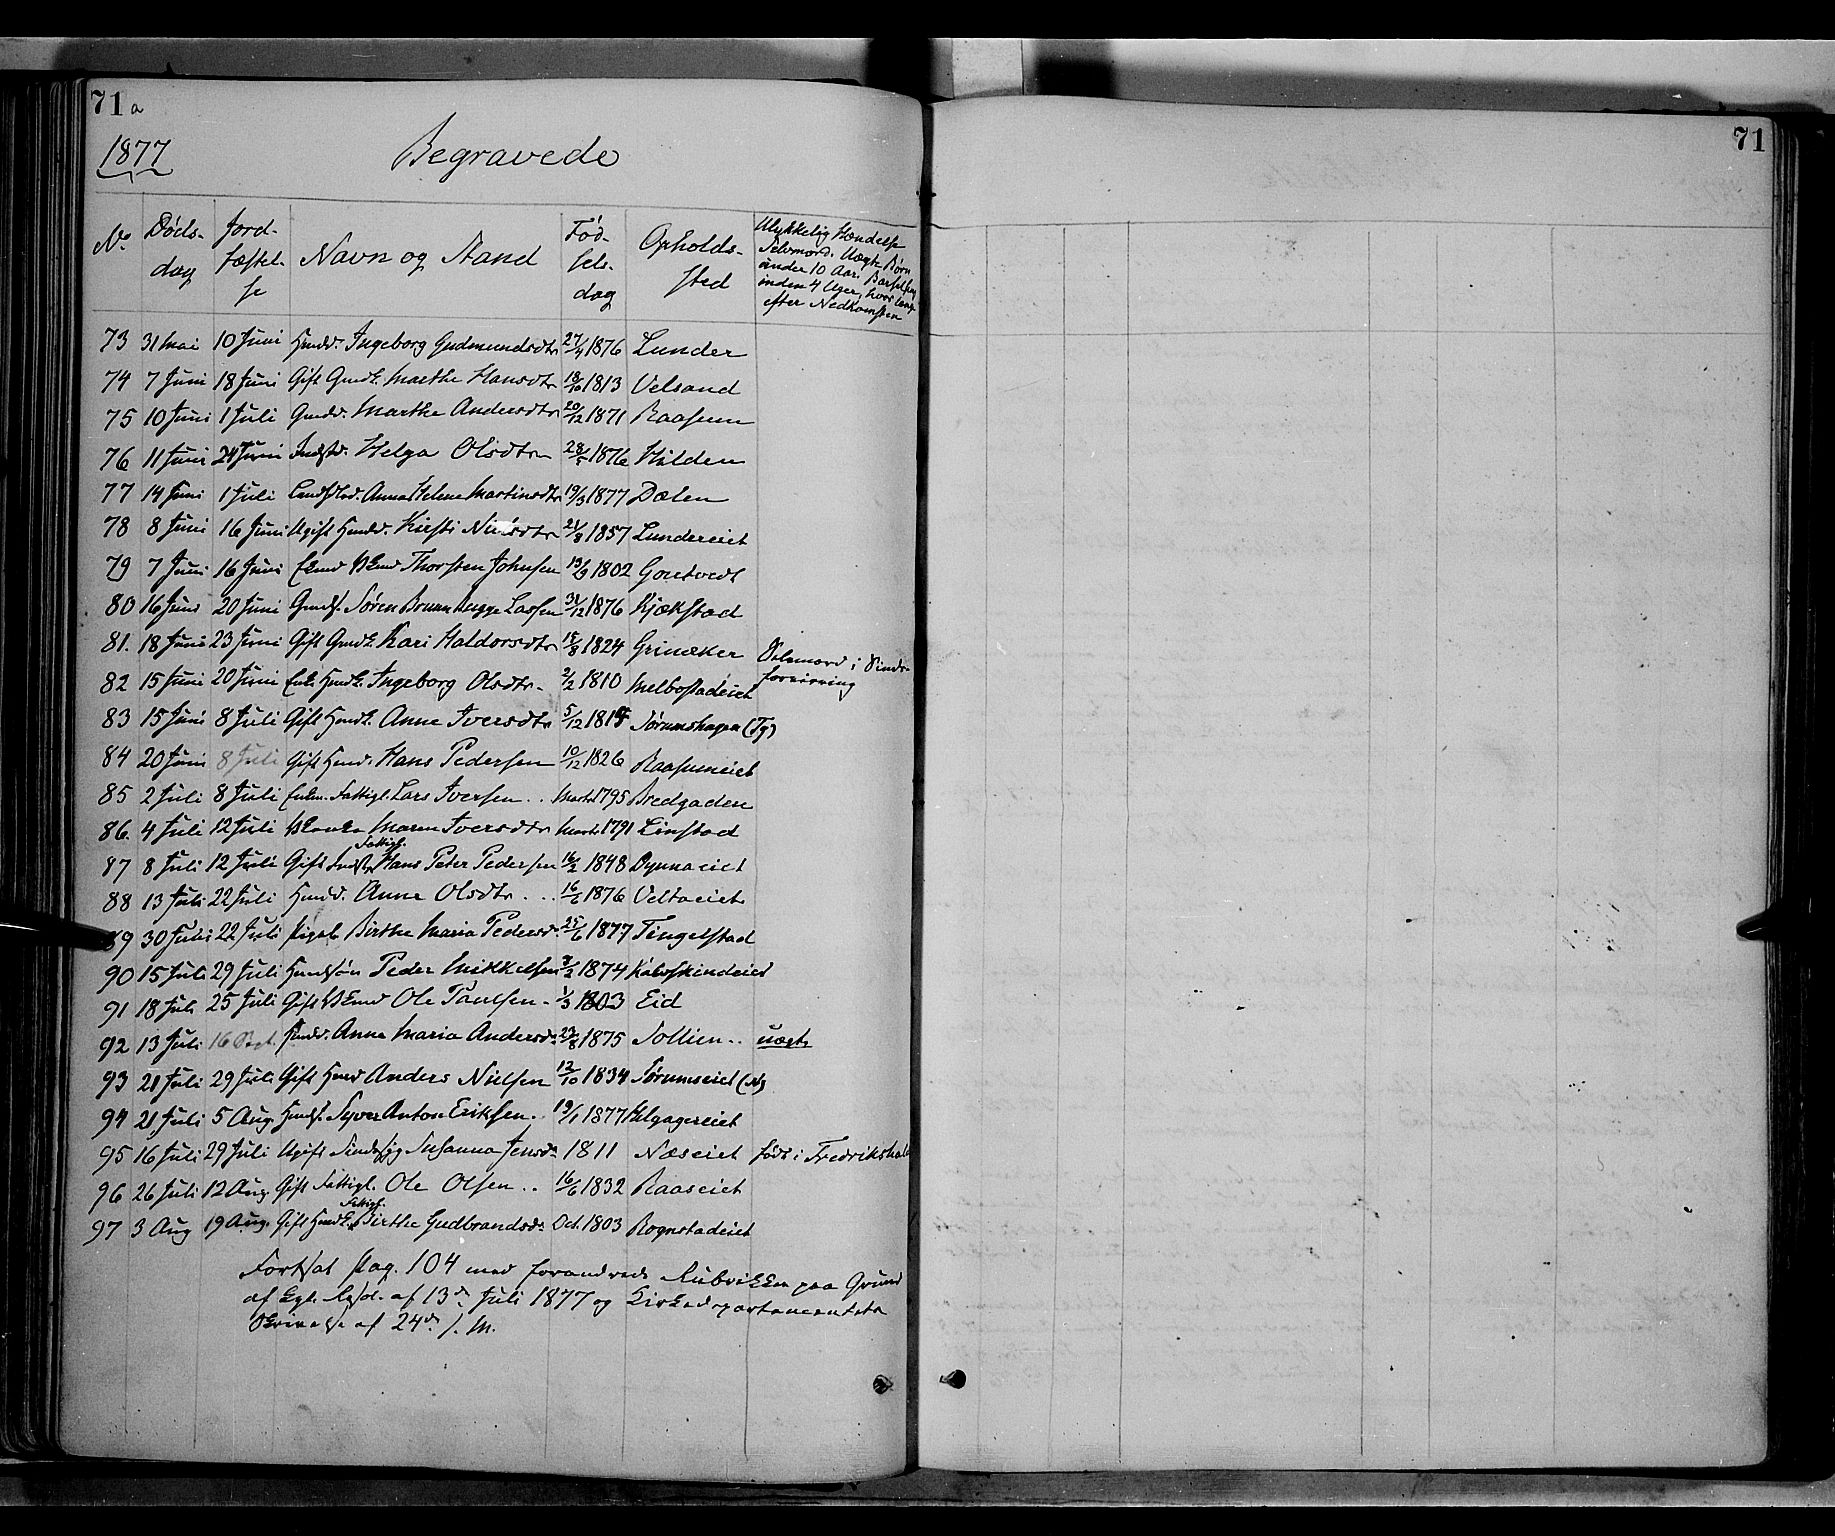 71a
71
1877
Begravede
No
Døds-
dag
Jord-
fæstel-
se
Navn og Stand
Fød-
sels-
dag
Opholds-
sted
Ulykkelig Hændelse
Selvmord. Uægte Børn
under 10 Aar. Barselseng
inden 4 Uger, hvor længe
efter Nedkomsten
73 31 Mai 10 Juni Husd. Ingeborg Gudmundsdtr 27/4 1876 Lunder
74 7 Juni 18 Juni Gift Gmdk. Marthe Hansdtr 18/10 1813 Velsand
75 10 Juni 1 Juli Gmdd. Marthe Andersdtr 20/12 1871 Raasum
76 11 Juni 24 Juni Indstd. Helga Olsdtr 1876 Hilden
77 14 Juni 1 Juli Anna Helene Martinsdtr 19/3 1877 Dælen
78 8 Juni 16 Juni Ugift Husd. Kirsti Nielsdtr 21/8 1857 Lundereiet
79 7 Juni 16 Juni Thorsten Johnsen 19/9 1802
80 16 Juni 20 Juni Gmds. Søren Bruun Bugge Lassen 31/12 1876 Kjækstad
81. 18 Juni 23 Juni Gift Gmdk Kari Haldorsdtr 18/8 1824 Grinaker Selvmord i Sinds-
forvirring
82 15 Juni 20 Juni Enke Husdk. Ingeborg Olsdtr. 2/2 1810 Melbostadeiet
83 15 Juni 8 Juli Gift Husdk. Anne Iversdtr 5/12 1815 Sørumshagen (Tg)
84 20 Juni 8 Juli Gift Husd. Hans Pedersen 10/12 1826 Raasumeiet
85 2 Juli 8 Juli Enkm. Fattigl. Lars Iversen .. Marts 1795 Bredgaden
86. 4 Juli 12 Juli Maren Iversdtr Marts 1791 Linstad
87 8 Juli 12 Juli Gift Indst. Fattigl. Hans Peter Pedersen 16/2 1848 Dynnaeiet
88 13 Juli 22 Juli Husd. Anne Olsdtr. ... 1876 Veltaeiet
89 30 Juli 22 Juli Pigeb. Birthe Maria Pedersd. 25/6 1877 Tingelstad
90 15 Juli 29 Juli Husmsøn Peder Mikkelsen 1874 Kalvskindeiet
91 18 Juli 25 Juli Gift Ole Paulsen. 1/3 1803 Eid
92 13 Juli Husd. Anne Maria Andersd. 1875 Sollien.. uægte
93 21 Juli 29 Juli Gift Husmd Anders Nielsen 12/10 1834 Sørumseiet (N)
94 21 Juli 5 Aug. Husms. Syver Anton Eriksen.. 19/1 1877 Helgagereiet
95 16 Juli 29 Juli Ugift Sindssyg Susanna Jensd. 1811 Næseiet født i Fredrikshald
96 26 Juli 12 Aug. Gift Fattigl. Ole Olsen .. 16/6 1832 Raaseiet
97 3 Aug 19 Aug. Gift Husmk. Fattigl. Birthe Gudbrandsd. Oct. 1803 Rognstadeiet
Fortsat Pag. 104 med forandrede Rubrikker paa Grund
af kgl. Resol. af 13de Juli 1877 og Kirkedepartementets
Skrivelse af 24de s. M.